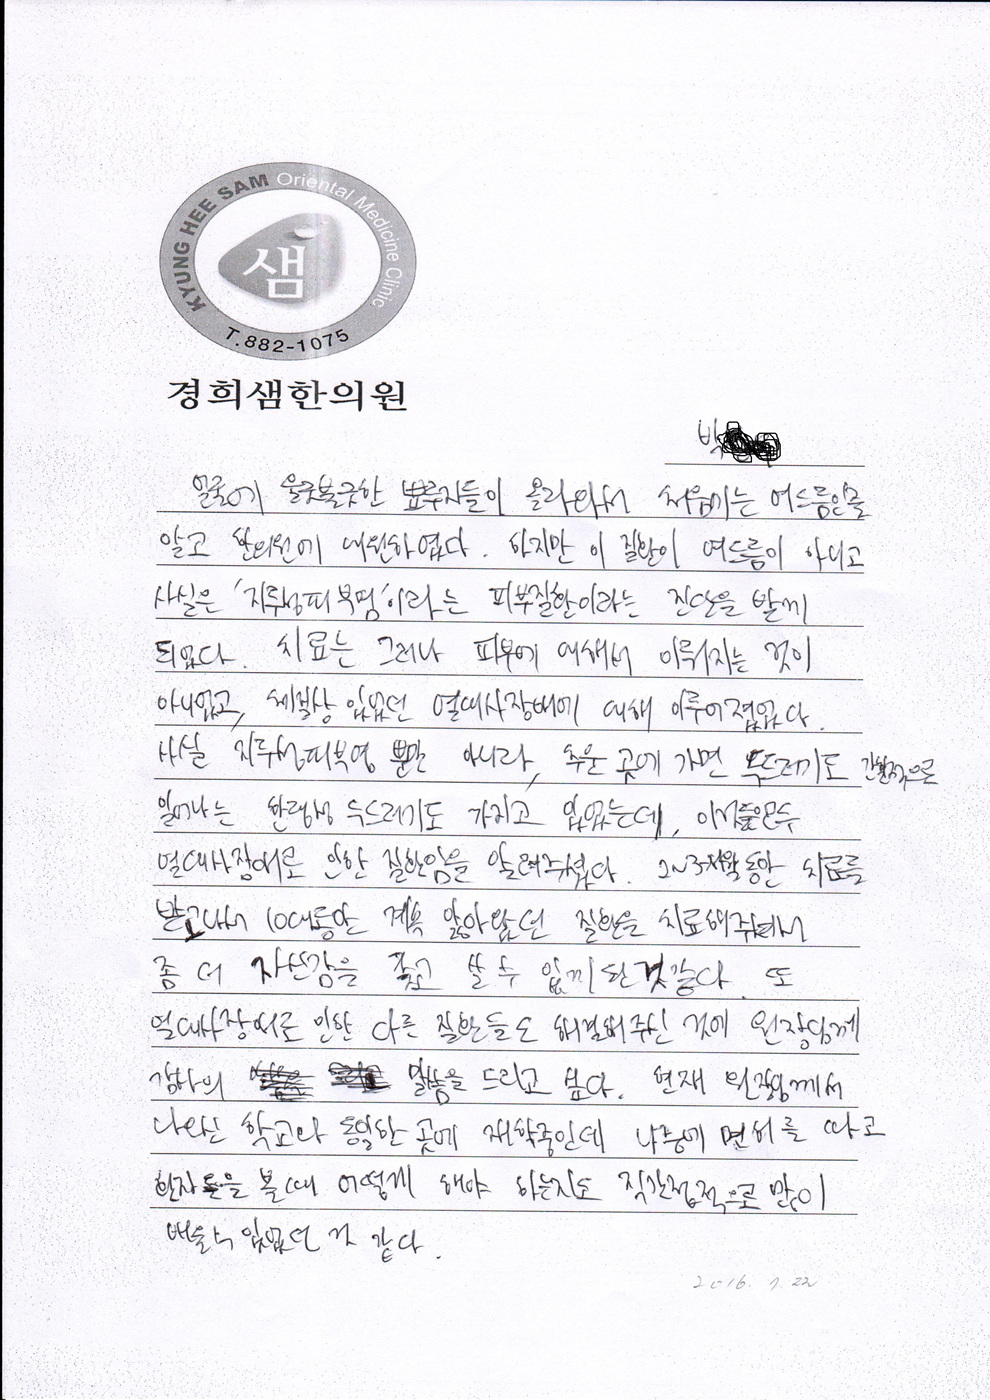 KYUNG HEE SAM Oriental Medicine Clinic
샘
T.882-1075
경희샘한의원
박
얼굴에 울긋불긋한 뾰루지들이 올라와서 처음에는 여드름인줄
알고 한의원에 내원하였다. 하지만 이 질환이 여드름이 아니고
사실은 '지루성피부염'이라는 피부질환이라는 진단을 받게
되었다. 치료는 그러나 피부에 대해서 이뤄지는 것이
아니었고, 예상 있었던 열대사장애에 대해 이루어졌었다.
사실 지루성피부염 뿐만 아니라, 추운 곳에 가면 두드러기도 간헐적으로
일어나는 한랭성 두드러기도 가지고 있었는데, 이것들모두
열대사장애로 인한 질환임을 알려주셨다. 2~3개월동안 치료를
받고나서 10대동안 계속 앓아왔던 질환을 치료해주셔서
좀 더 자신감을 갖고 살 수 있게 된 것 같다. 또
열대사장애로 인한 다른 질환들도 해결해주신 것에 원장님께
감사의 말씀을 드리고 싶다. 현재 원장님께서
나오신 학교와 동일한 곳에 재학중인데 나중에 면허를 따고
환자들을 볼때 어떻게 해야 하는지도 직간접적으로 많이
배울수 있었던 것 같다.
2016. 7. 22